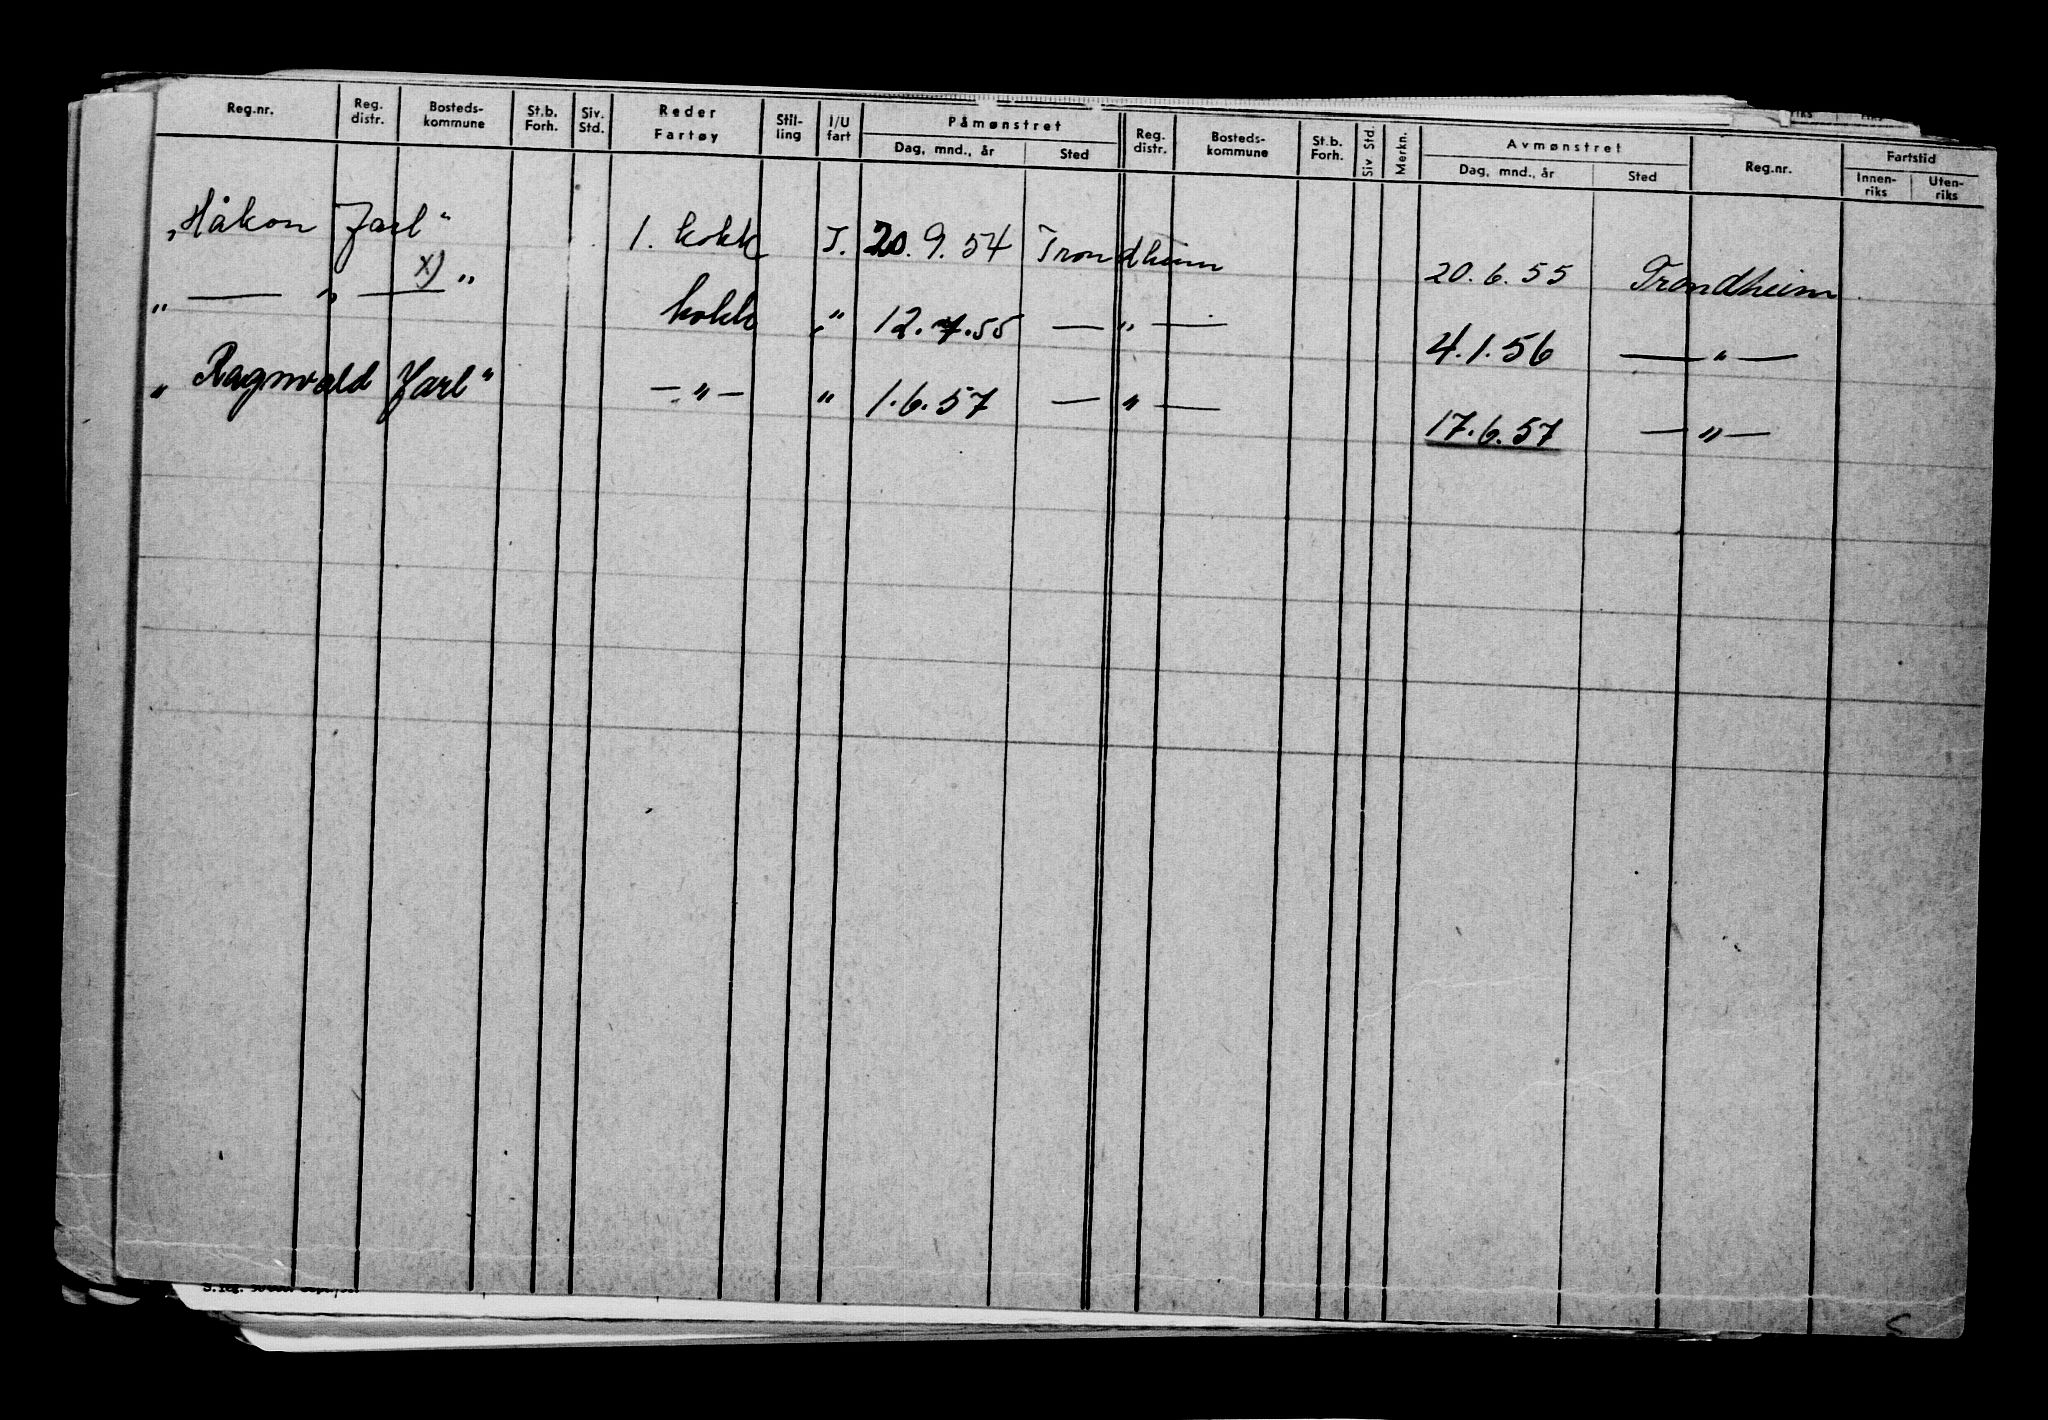 Reg.nr. Reg. distr. Bosteds- kommune St.b. Forh. Siv. Std. Reder Fartøy Stil- ling I/U fart Påmønstret Dag, mnd., år Sted Reg. distr. Bosteds- kommune St.b. Forh. Siv. Std. Merkn. Avmønstret Dag, mnd., år Sted Reg.nr. Fartstid Innen- riks Uten- riks
„Håkon Jarl" 1. kokk I. 20.9.54 Trondheim 20.6.55 Trondheim
„ — „ — x) " kokk „" 12.7.55 — „ — 4.1.56 — „ —
„Ragnvald Jarl" — „ — " 1.6.57 — „ — 17.6.57 — „ —